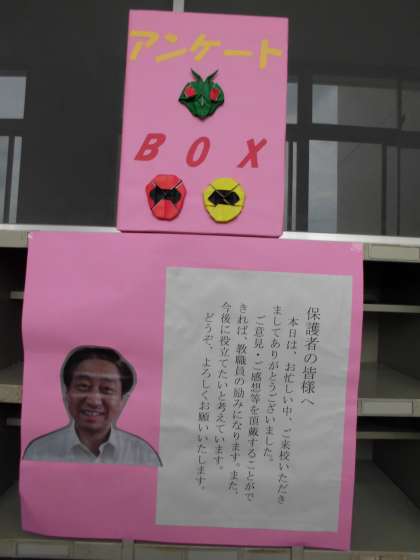 アンケート
BOX
保護者の皆様へ
本日は、お忙しい中、ご来校いただき
ましてありがとうございました。
ご意見・ご感想等を頂戴することがで
きれば、教職員の励みになります。また、
今後に役立てたいと考えています。
どうぞ、よろしくお願いいたします。